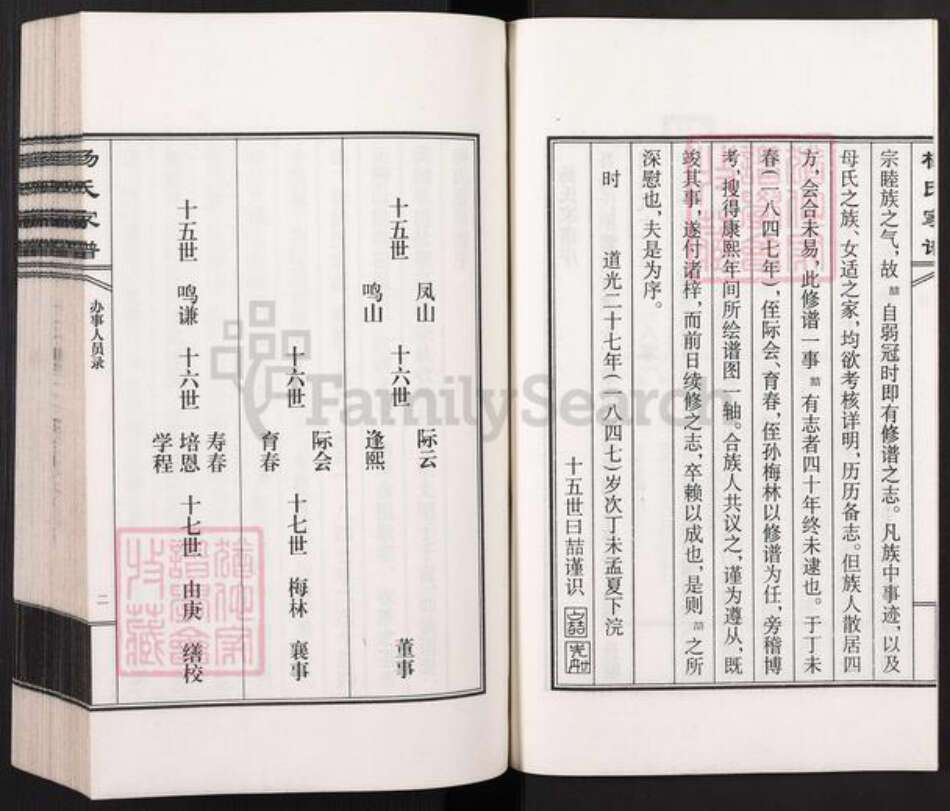 杨氏家谱
宗睦族之气，故喆自弱冠时即有修谱之志。凡族中事迹，以及
母氏之族、女适之家，均欲考核详明，历历备志。但族人散居四
方，会合未易，此修谱一事喆有志者四十年终未逮也。于丁未
春（一八四七年），侄际会、育春，侄孙梅林以修谱为任，旁稽博
考，搜得康熙年间所绘谱图一轴。合族人共议之，谨为遵从，既
竣其事，遂付诸梓，而前日续修之志，卒赖以成也，是则喆之所
深慰也，夫是为序。
时　道光二十七年（一八四七）岁次丁未孟夏下浣
十五世曰喆谨识
十五世　凤山　十六世　际云　董事
鸣山　逢熙
十六世　际会　十七世　梅林　襄事
育春
十五世　鸣谦　十六世　寿春　十七世　由庚　缮校
培恩
学程
杨氏家谱
办事人员录
二
FamilySearch